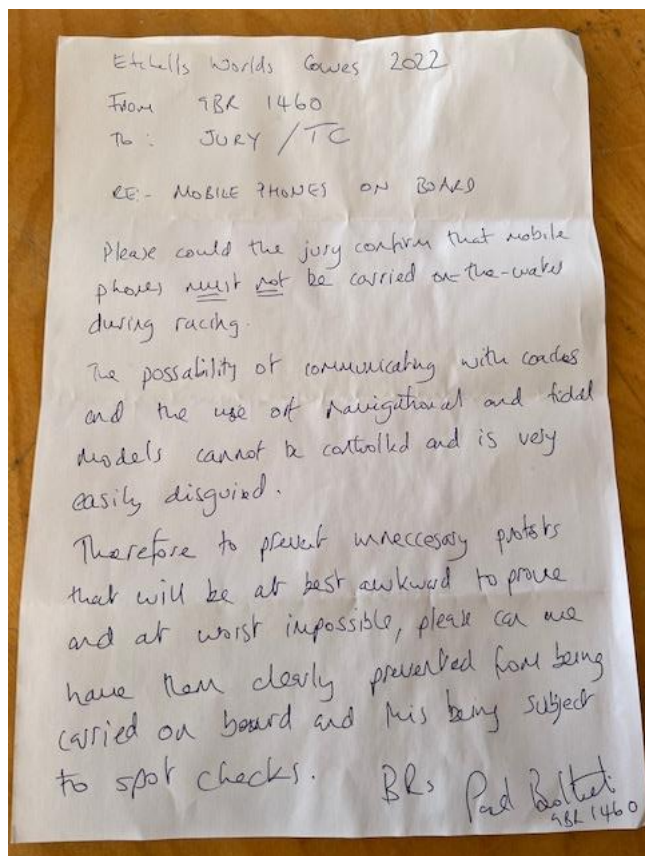 Etchells Worlds Cowes 2022
From GBR 1460
To: JURY / TC
RE:- MOBILE PHONES ON BOARD
Please could the jury confirm that mobile
phones must not be carried on-the-water
during racing.
The possability of communicating with coaches
and the use of navigational and tidal
models cannot be controlled and is very
easily disguised.
Therefore to prevent unneccesary protests
that will be at best awkward to prove
and at worst impossible, please can we
have them clearly prevented from being
carried on board and this being subject
to spot checks.
BRs
GBR 1460